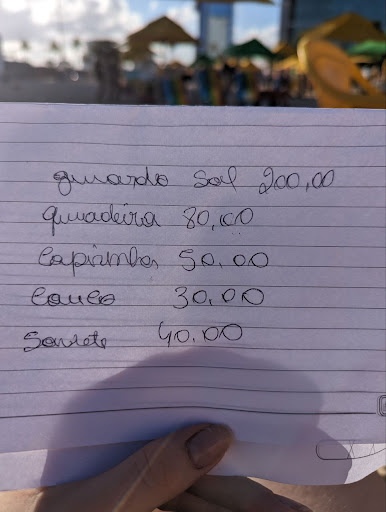 guardo sol 200,00
quadeira 80,00
Capirinha 50.00
couco 30.00
Sorvete 40.00